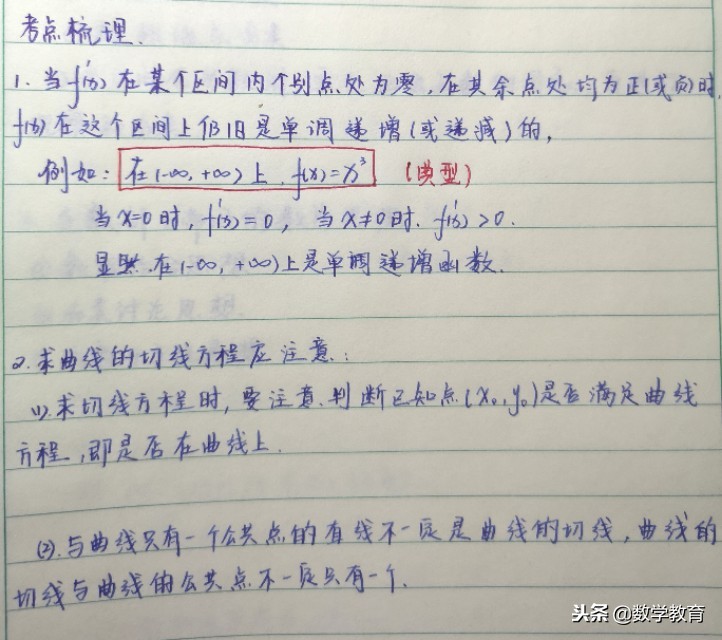 考点梳理.
1. 当f'(x)在某个区间内个别点处为零,在其余点处均为正(或负)时,
f(x)在这个区间上仍旧是单调递增(或递减)的,
例如: 在(-∞, +∞)上, f(x)=x³ (典型)
当x=0时, f'(x)=0, 当x≠0时. f'(x)>0.
显然.在(-∞, +∞)上是单调递增函数.
2.求曲线的切线方程应注意:
(1).求切线方程时,要注意.判断已知点(x₀, y₀)是否满足曲线
方程,即是否在曲线上.
(2).与曲线只有一个公共点的直线不一定是曲线的切线,曲线的
切线与曲线的公共点不一定只有一个.
头条 @数学教育